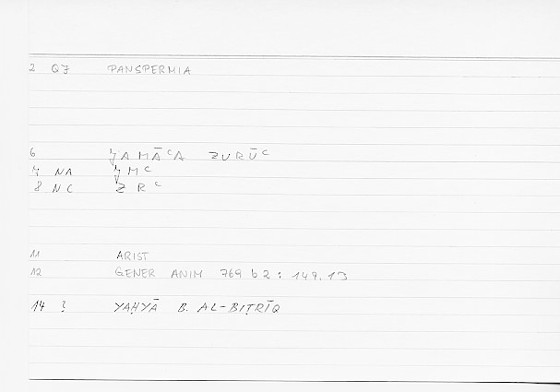 2 Q7 PANSPERMIA
6 ǦAMĀᶜA ZURŪᶜ
7 NA ǦMᶜ
8 NC ZRᶜ
11 ARIST
12 GENER ANIM 769 b 2 : 149.13
14 ? YAḤYĀ B. AL-BIṬRĪQ